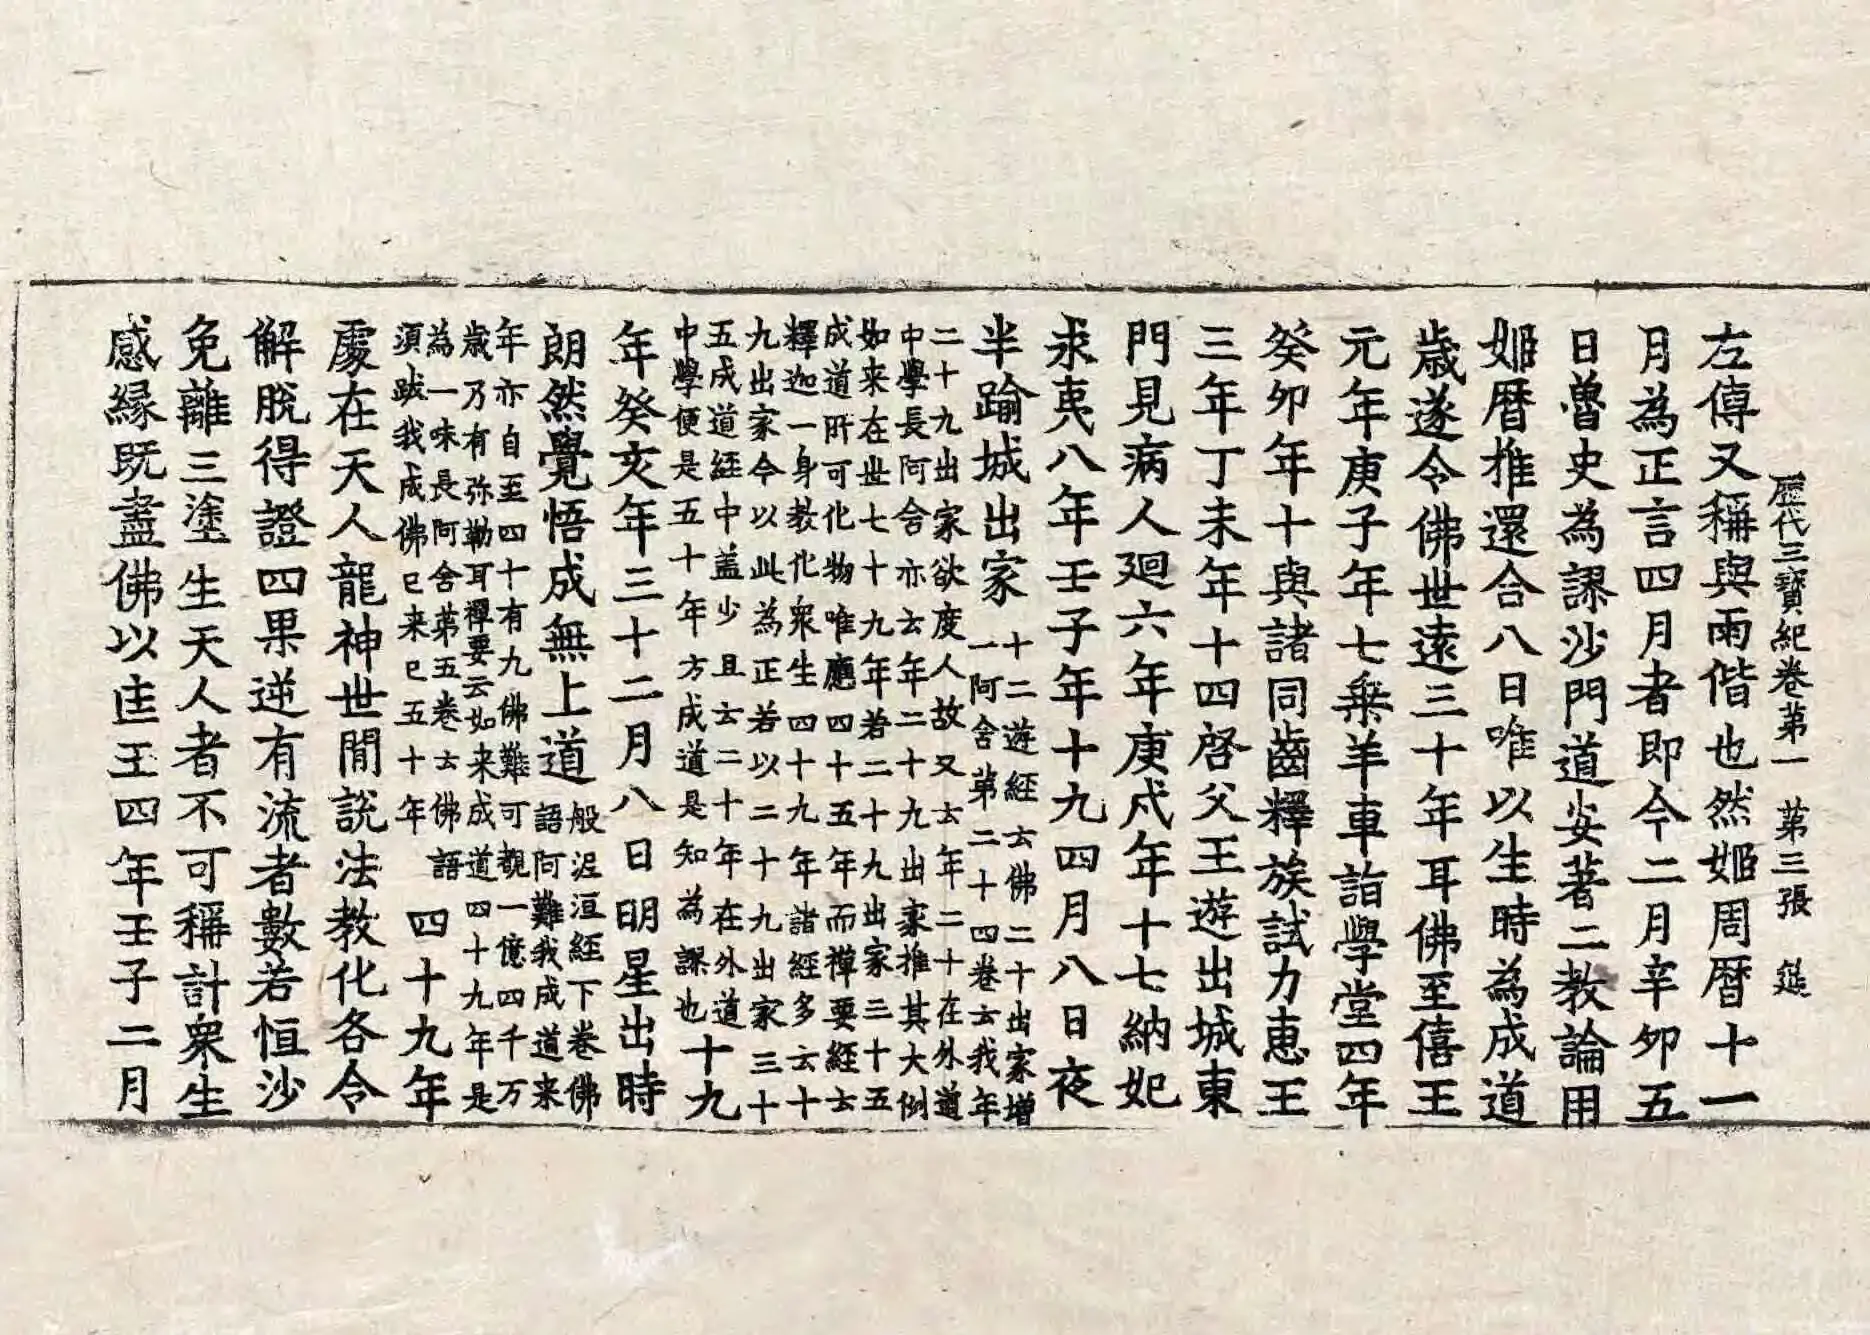 歷代三寶紀卷第一　第三張　㢟
左傳又稱與雨偕也然姬周曆十一
月為正言四月者即今二月辛卯五
日魯史為謬沙門道安著二教論用
姬曆推還合八日唯以生時為成道
歲遂令佛世遠三十年耳佛至僖王
元年庚子年七乗羊車詣學堂四年
癸卯年十與諸同齒釋族試力惠王
三年丁未年十四啓父王遊出城東
門見病人廻六年庚戌年十七納妃
求夷八年壬子年十九四月八日夜
半踰城出家
十二遊經云佛二十出家增
一阿舍第二十四卷云我年
二十九出家欲度人故又云年二十在外道
中學長阿舍亦云年二十九出家推其大例
如来在世七十九年若二十九出家三十五
成道所可化物唯應四十五年而禪要經云
釋迦一身教化衆生四十九年諸經多云十
九出家今以此為正若以二十九出家三十
五成道經中盖少且云二十年在外道
中學便是五十年方成道是知為謬也
十九
年癸亥年三十二月八日明星出時
朗然覺悟成無上道
般泥洹經下卷佛
語阿難我成道来
年亦自至四十有九佛難可覩一億四千万
歲乃有弥勒耳禪要云如来成道四十九年是
為一味長阿舍第五卷云佛語
須跋我成佛已来已五十年
四十九年
處在天人龍神世間説法教化各令
解脫得證四果逆有流者數若恒沙
免離三塗生天人者不可稱計衆生
感縁既盡佛以匡王四年壬子二月